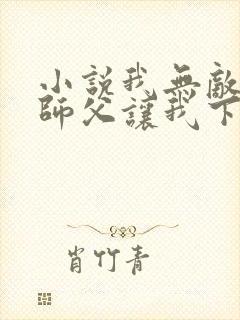 小說我無敵
師父讓我下
肖竹青